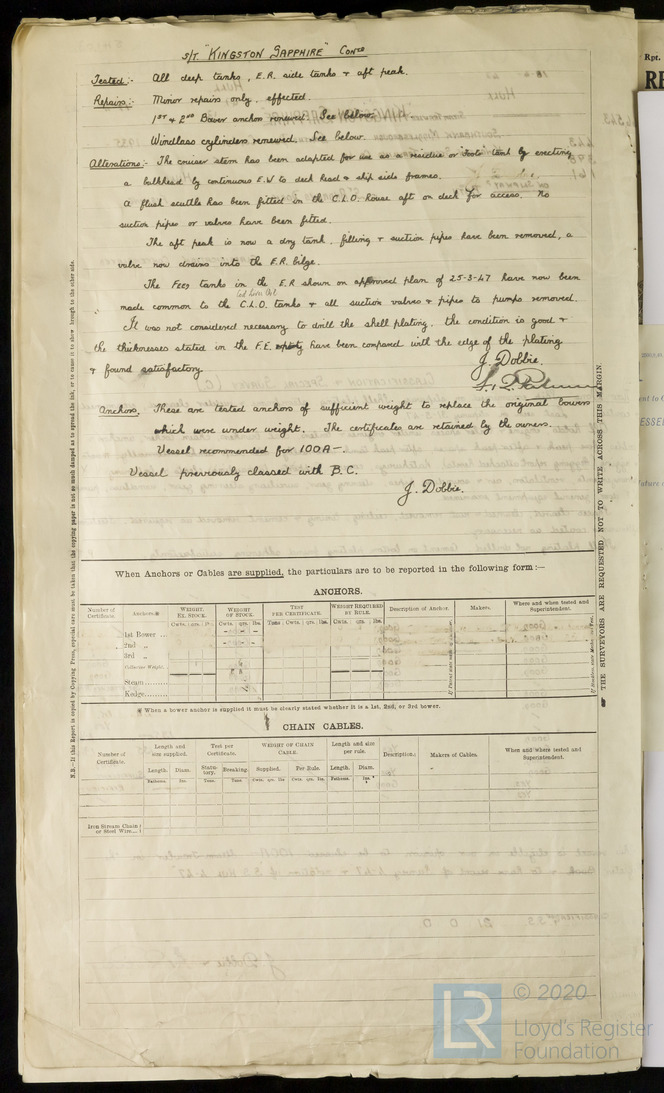 S/T "KINGSTON SAPPHIRE" CONTD
Tested:- All deep tanks, E.R. side tanks & aft peak.
Repairs:- Minor repairs, only, effected.
1ST & 2ND Bower anchor renewed. See below.
Windlass cylinders renewed. See below.
Alterations:- The cruiser stern has been adapted for use as a residue or "foots" tank by erecting
a bulkhead by continuous E.W to deck head & ship side frames.
A flush scuttle has been fitted in the C.L.O. house aft on deck for access. No
suction pipes or valves have been fitted.
The aft peak is now a dry tank, filling & suction pipes have been removed, a
valve now drains into the E.R. bilge.
The Feed tanks in the E.R shown on approved plan of 25-3-47 have now been
Cod Liver Oil
made common to the C.L.O. tanks & all suction valves & pipes to pumps removed.
It was not considered necessary to drill the shell plating, the condition is good &
the thicknesses stated in the F.E. have been compared with the edge of the plating
& found satisfactory.
J. Dobbie.
Anchors. These are tested anchors of sufficient weight to replace the original bowers
which were under weight. The certificates are retained by the owners.
Vessel recommended for 100A-.
Vessel previously classed with B.C.
J. Dobbie.
When Anchors or Cables are supplied, the particulars are to be reported in the following form:—
ANCHORS.
Number of Certificate. Anchors. WEIGHT. EX. STOCK. WEIGHT OF STOCK. TEST PER CERTIFICATE. WEIGHT REQUIRED BY RULE. Description of Anchor. Makers. Where and when tested and Superintendent.
Cwts. qrs. lbs. Cwts. qrs. lbs. Tons. Cwts. qrs. lbs. Cwts. qrs. lbs.
1st Bower ...
2nd „
3rd „
Collective Weight.
Stream
Kedge
When a bower anchor is supplied it must be clearly stated whether it is a 1st, 2nd, or 3rd bower.
CHAIN CABLES.
Number of Certificate. Length and size supplied. Test per Certificate. WEIGHT OF CHAIN CABLE. Length and size per rule. Description. Makers of Cables. When and where tested and Superintendent.
Length. Diam. Statutory. Breaking. Supplied. Per Rule. Length. Diam.
Fathoms. Ins. Tons. Tons. Cwts. qrs. lbs. Cwts. qrs. lbs. Fathoms. Ins.
Iron Stream Chain
or Steel Wire...
N.B.—If this Report is copied by Copying Press, especial care must be taken that the copying paper is not so much damped as to spread the ink, or to cause it to show through to the other side.
THE SURVEYORS ARE REQUESTED NOT TO WRITE ACROSS THIS MARGIN.
Rpt.
© 2020
LR
Lloyd's Register
Foundation